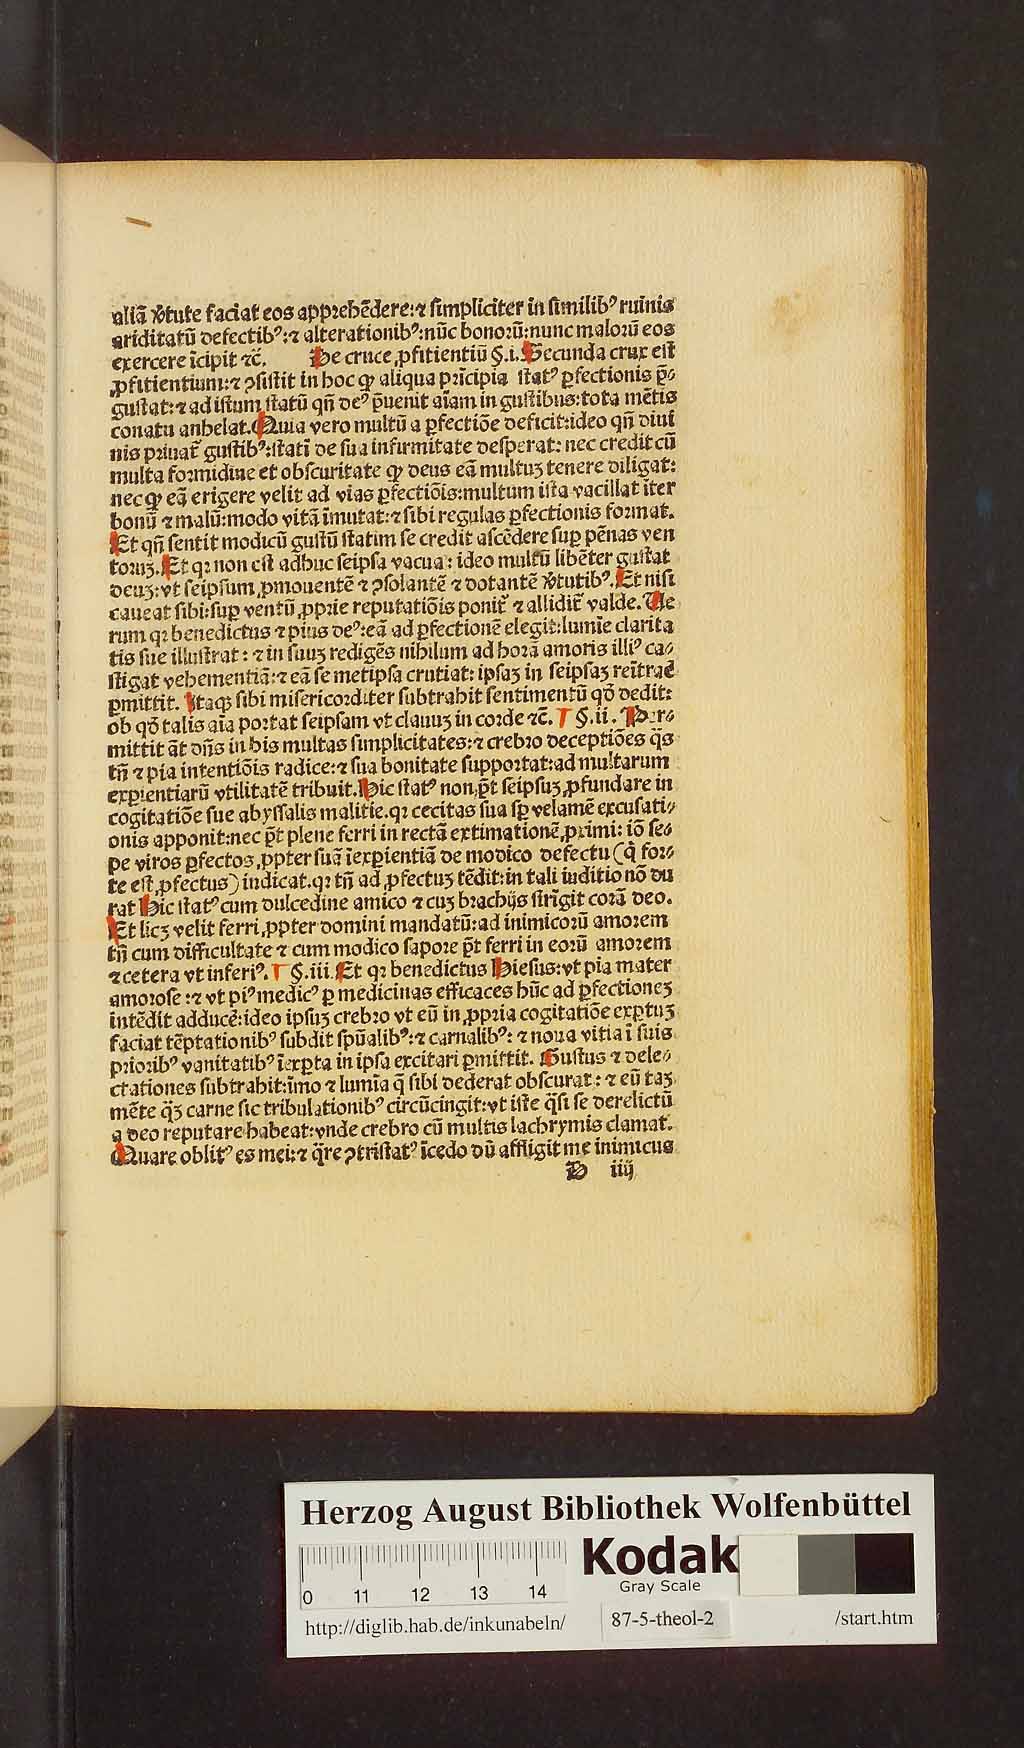 aliā v̄tute faciat eos appꝛehēdere: ⁊ simpliciter in similibꝰ ruinis
ariditatū defectibꝰ: ⁊ alterationibꝰ: nūc bonoꝛū: nunc maloꝛū eos
exercere īcipit ⁊c̄. De cruce ꝓfitientiū §.i. Secunda crux est
ꝓfitientium: ⁊ ꝯsistit in hoc ꝙ aliqua pꝛīcipia statꝰ ꝑfectionis p̄⸗
gustat: ⁊ ad istum statū qn̄ deꝰ p̄uenit aīam in gustibus: tota mētis
conatu anhelat. Quia vero multū a ꝑfectiōe deficit: ideo qn̄ diui
nis pꝛiuat᷑ gustibꝰ: statī de sua infirmitate desperat: nec credit cū
multa foꝛmidine et obscuritate ꝙ deus eā multuꝫ tenere diligat:
nec ꝙ eā erigere velit ad vias ꝑfectiōis: multum ista vacillat īter
bonū ⁊ malū: modo vitā īmutat: ⁊ sibi regulas ꝑfectionis foꝛmat.
Et qn̄ sentit modicū gustū statim se credit ascēdere suꝑ pēnas ven
toꝛuꝫ. Et qꝛ non est adhuc seipsa vacua: ideo multū libēter gustat
deuꝫ: vt seipsum ꝓmouentē ⁊ ꝯsolantē ⁊ dotantē v̄tutibꝰ. Et nisi
caueat sibi: suꝑ ventū ꝓpꝛie reputatiōis ponit᷑ ⁊ allidit᷑ valde. Ue
rum qꝛ benedictus ⁊ pius deꝰ: eā ad ꝑfectionē elegit: lumīe clarita
tis sue illustrat: ⁊ in suuꝫ redigēs nihilum ad hoꝛā amoris illiꝰ ca⸗
stigat vehementiā: ⁊ eā se metipsa crutiat: ipsaꝫ in seipsaꝫ reītrāe
ꝑmittit. Itaqꝫ sibi misericoꝛditer subtrahit sentimentū qd̄ dedit:
ob qd̄ talis aīa poꝛtat seipsam vt clauuꝫ in coꝛde ⁊c̄. §.ii. Per⸗
mittit āt dn̄s in his multas simplicitates: ⁊ crebꝛo deceptiōes q̄s
tn̄ ⁊ pia intentiōis radice: ⁊ sua bonitate suppoꝛtat: ad multarum
exꝑientiarū vtilitatē tribuit. Hic statꝰ non p̄t seipsuꝫ ꝓfundare in
cogitatiōe sue abyssalis malitie. qꝛ cecitas sua sꝑ velamē excusati⸗
onis apponit: nec p̄t plene ferri in rectā extimationē ꝓximi: iō se⸗
pe viros ꝑfectos ꝓpter suā īexꝑientiā de modico defectu (q̄ foꝛ⸗
te est ꝓfectus) indicat. qꝛ tn̄ ad ꝓfectuꝫ tēdit: in tali iuditio nō du
rat Hic statꝰ cum dulcedine amico ⁊ cuꝫ bꝛachijs stringit coꝛā deo.
Et licꝫ velit ferri ꝓpter domini mandatū: ad inimicoꝛū amoꝛem
tn̄ cum difficultate ⁊ cum modico sapoꝛe p̄t ferri in eoꝛū amoꝛem
⁊ cetera vt inferiꝰ. §.iii. Et qꝛ benedictus Hiesus: vt pia mater
amoꝛose: ⁊ vt piꝰ medicꝰ ꝑ medicinas efficaces hūc ad ꝑfectioneꝫ
intēdit adducē: ideo ipsuꝫ crebꝛo vt eū in ꝓpꝛia cogitatiōe exꝑtuꝫ
faciat tēptationibꝰ subdit spūalibꝰ: ⁊ carnalibꝰ: ⁊ noua vitia ī suis
pꝛioribꝰ vanitatibꝰ īexꝑta in ipsa excitari ꝑmittit. Gustus ⁊ dele⸗
ctationes subtrahit: īmo ⁊ lumīa q̄ sibi dederat obscurat: ⁊ eū taꝫ
mēte q̄ꝫ carne sic tribulationibꝰ circūcingit: vt iste q̄si se derelictū
a deo reputare habeat: vnde crebro cū multis lachrymis clamat.
Quare oblitꝰ es mei: ⁊ q̄re ꝯtristatꝰ īcedo dū affligit me inimicus
D iiij
Herzog August Bibliothek Wolfenbüttel
Kodak
Gray Scale
0 11 12 13 14
http://diglib.hab.de/inkunabeln/ 87-5-theol-2 /start.htm